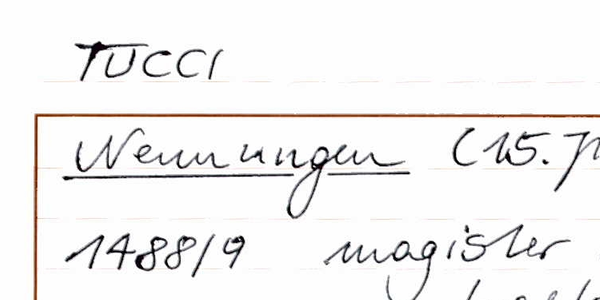 TUCCI
Nennungen (15.
1488/9 magister